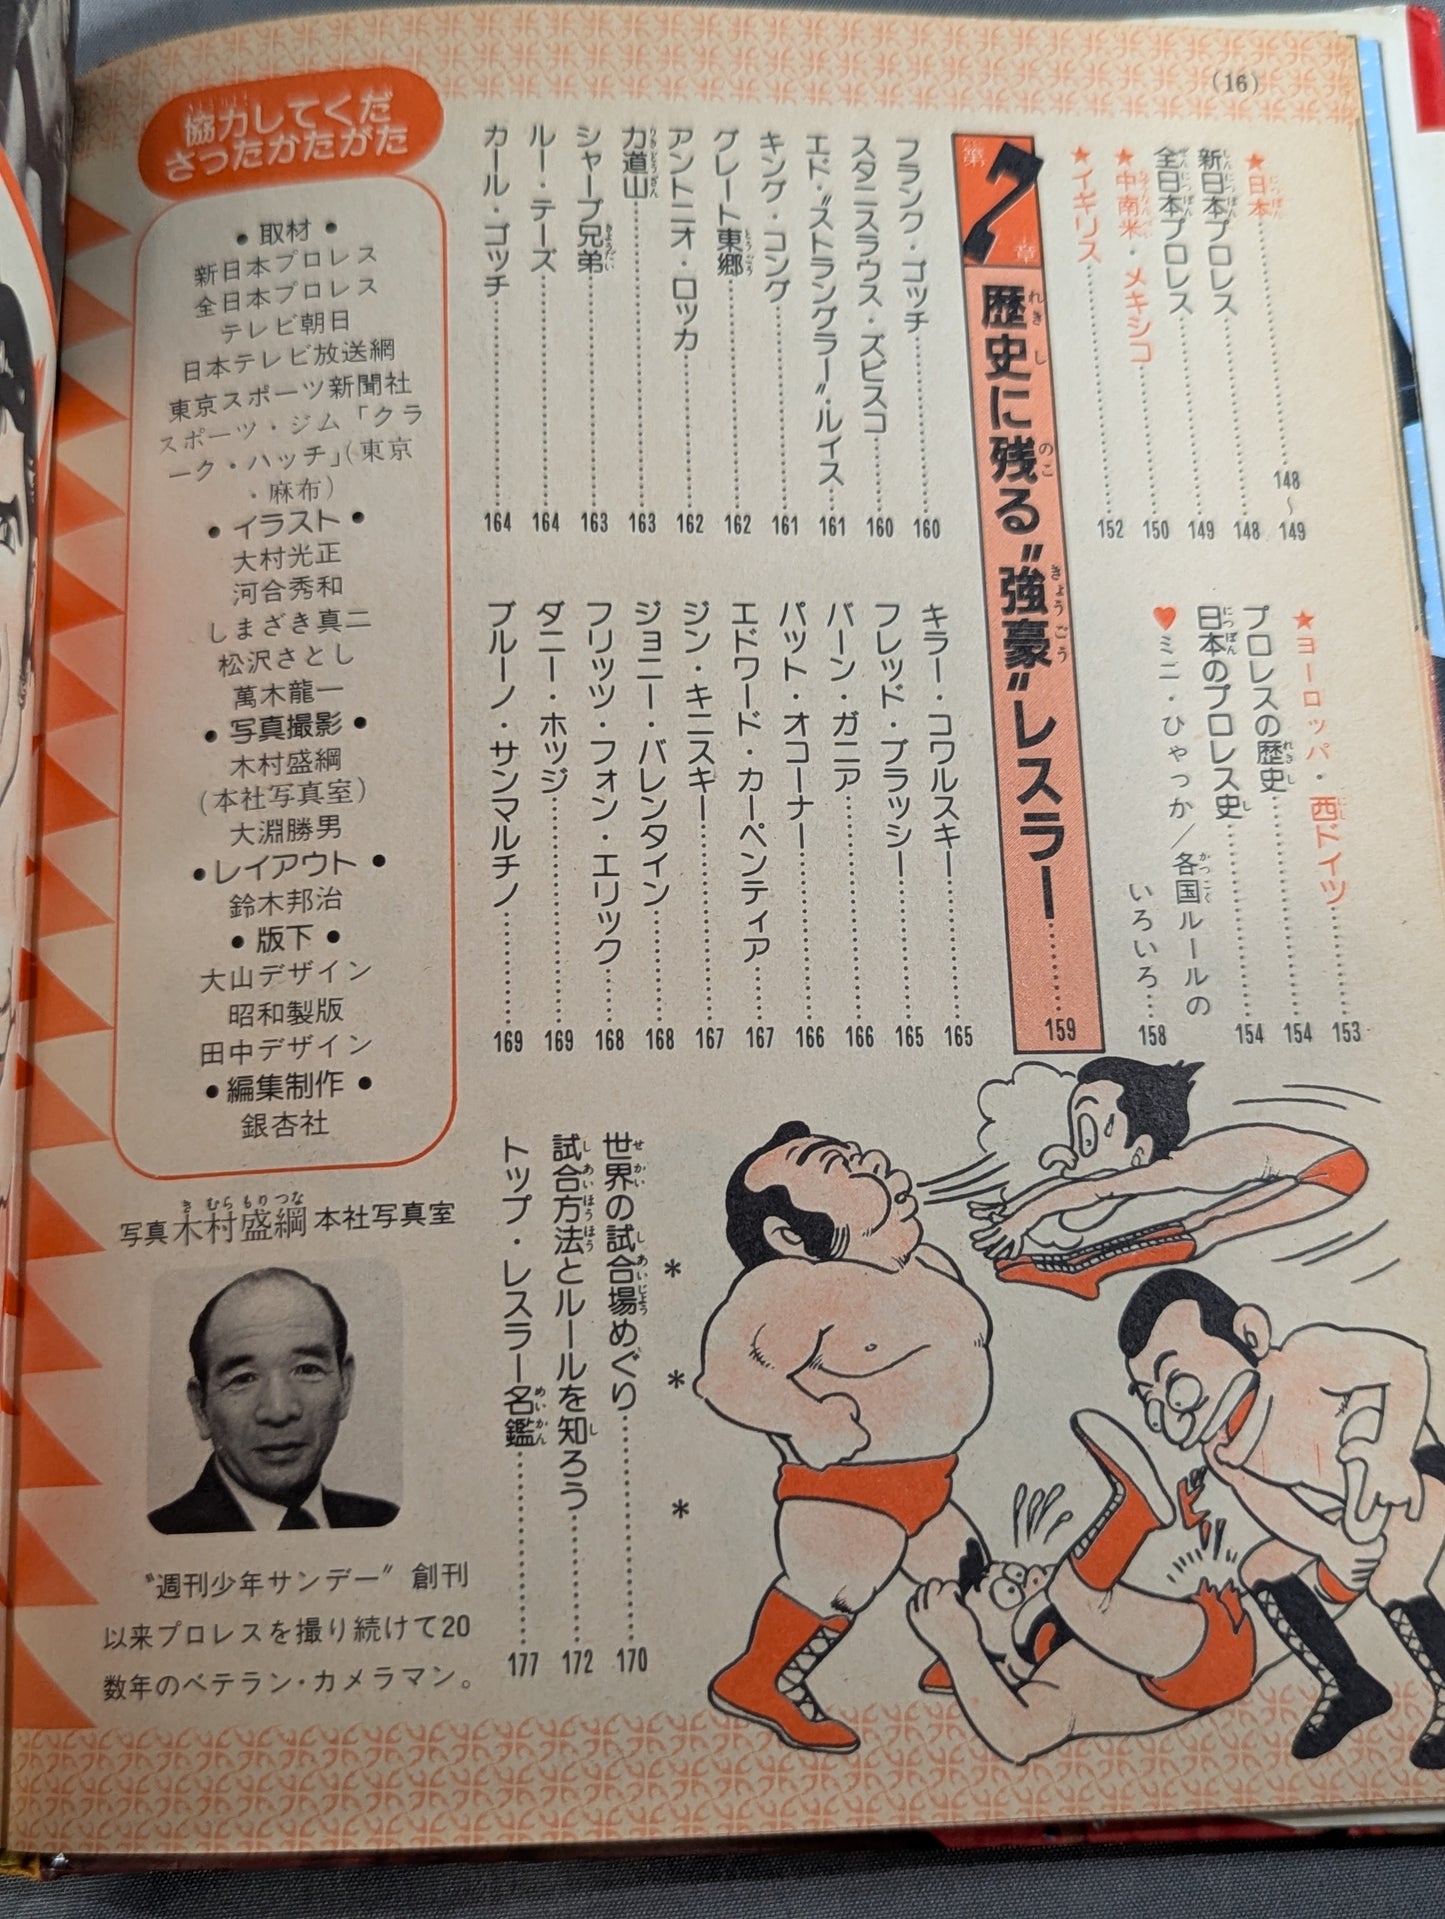 (16)
★日本 148〜149
新日本プロレス 148
全日本プロレス 149
★中南米・メキシコ 150
★イギリス 152
★ヨーロッパ・西ドイツ 153
プロレスの歴史 154
日本のプロレス史 154
♥ミニ・ひゃっか/各国ルールの
いろいろ 158
第7章 歴史に残る〝強豪〟レスラー 159
フランク・ゴッチ 160
スタニスラウス・ズビスコ 160
エド・〝ストラングラー〟・ルイス 161
キング・コング 161
グレート東郷 162
アントニオ・ロッカ 162
力道山 163
シャープ兄弟 163
ルー・テーズ 164
カール・ゴッチ 164
キラー・コワルスキー 165
フレッド・ブラッシー 165
バーン・ガニア 166
パット・オコーナー 166
エドワード・カーペンティア 167
ジン・キニスキー 167
ジョニー・バレンタイン 168
フリッツ・フォン・エリック 168
ダニー・ホッジ 169
ブルーノ・サンマルチノ 169
* * *
世界の試合場めぐり 170
試合方法とルールを知ろう 172
トップ・レスラー名鑑 177
協力してくだ
さったかたがた
●取材●
新日本プロレス
全日本プロレス
テレビ朝日
日本テレビ放送網
東京スポーツ新聞社
スポーツ・ジム「クラ
ーク・ハッチ」(東京
・麻布)
●イラスト●
大村光正
河合秀和
しまざき真二
松沢さとし
萬木龍一
●写真撮影●
木村盛綱
(本社写真室)
大淵勝男
●レイアウト●
鈴木邦治
●版下●
大山デザイン
昭和製版
田中デザイン
●編集制作●
銀杏社
写真 木村盛綱 本社写真室
〝週刊少年サンデー〟創刊
以来プロレスを撮り続けて20
数年のベテラン・カメラマン。